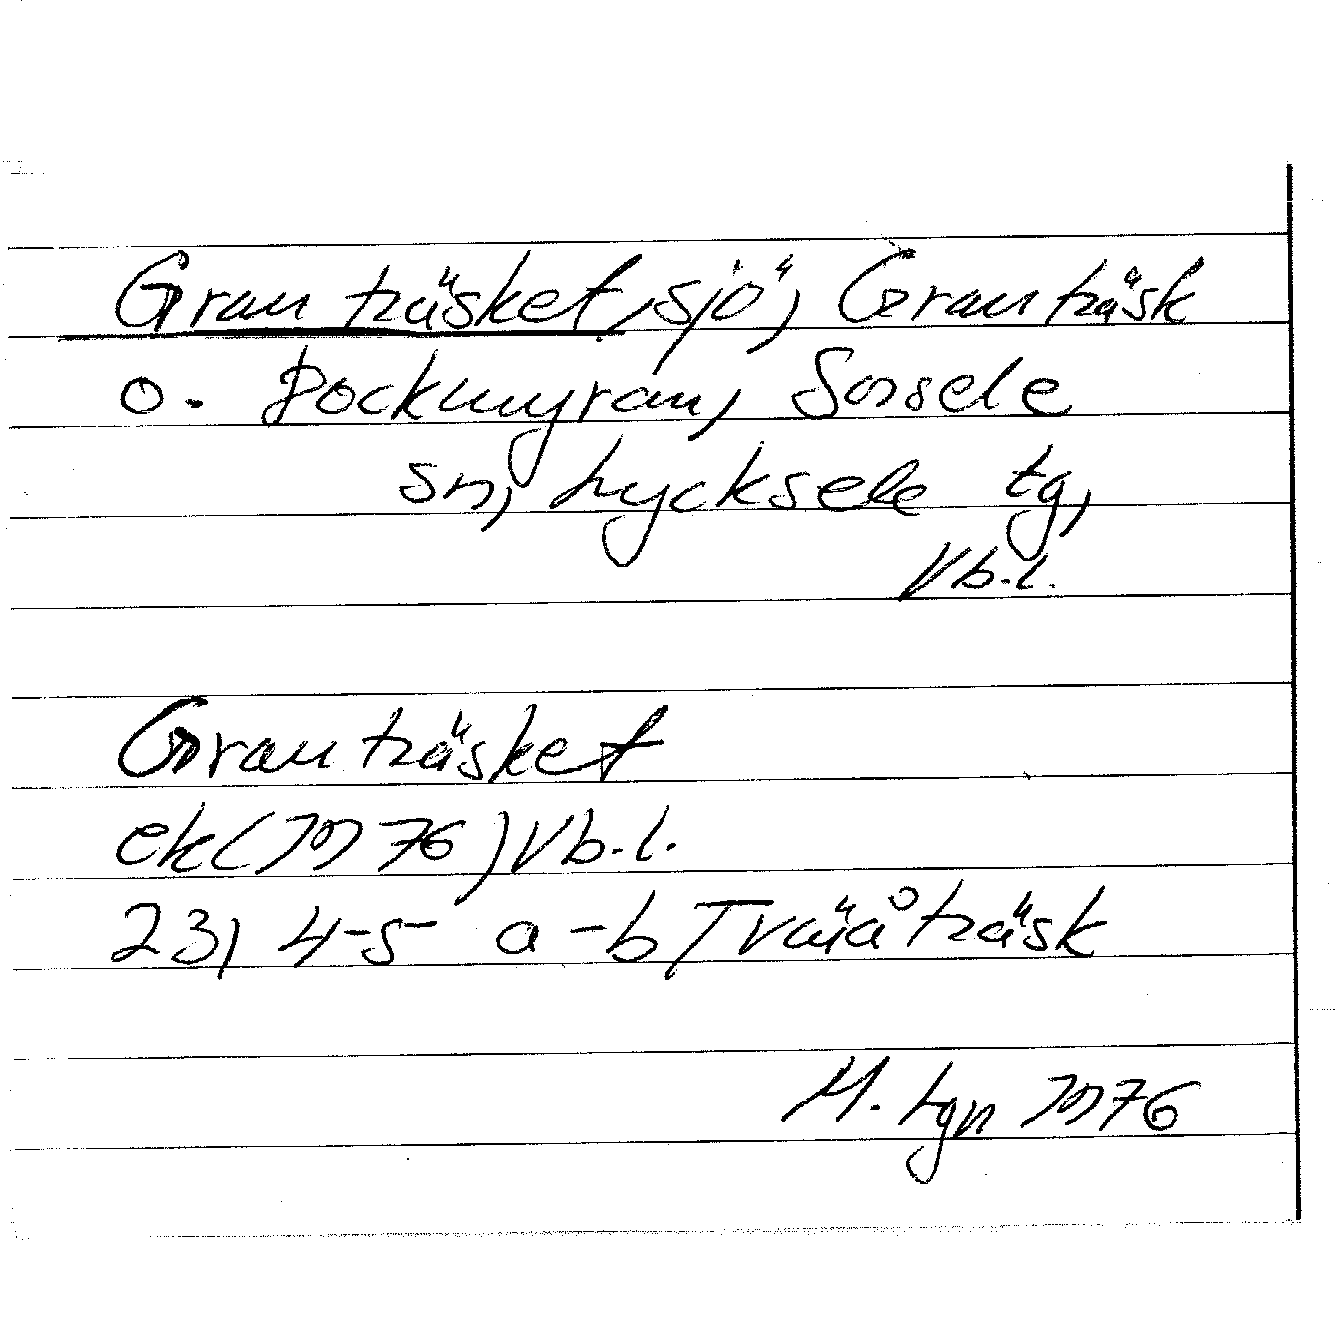 Granträsket, sjö, Granträsk
o. Pockmyran, Sorsele
sn, Lycksele tg,
Vb.l.
Granträsket
ek (1976) Vb.l.
23, 4-5 a-b, Tväråträsk
M. Lgn 1976